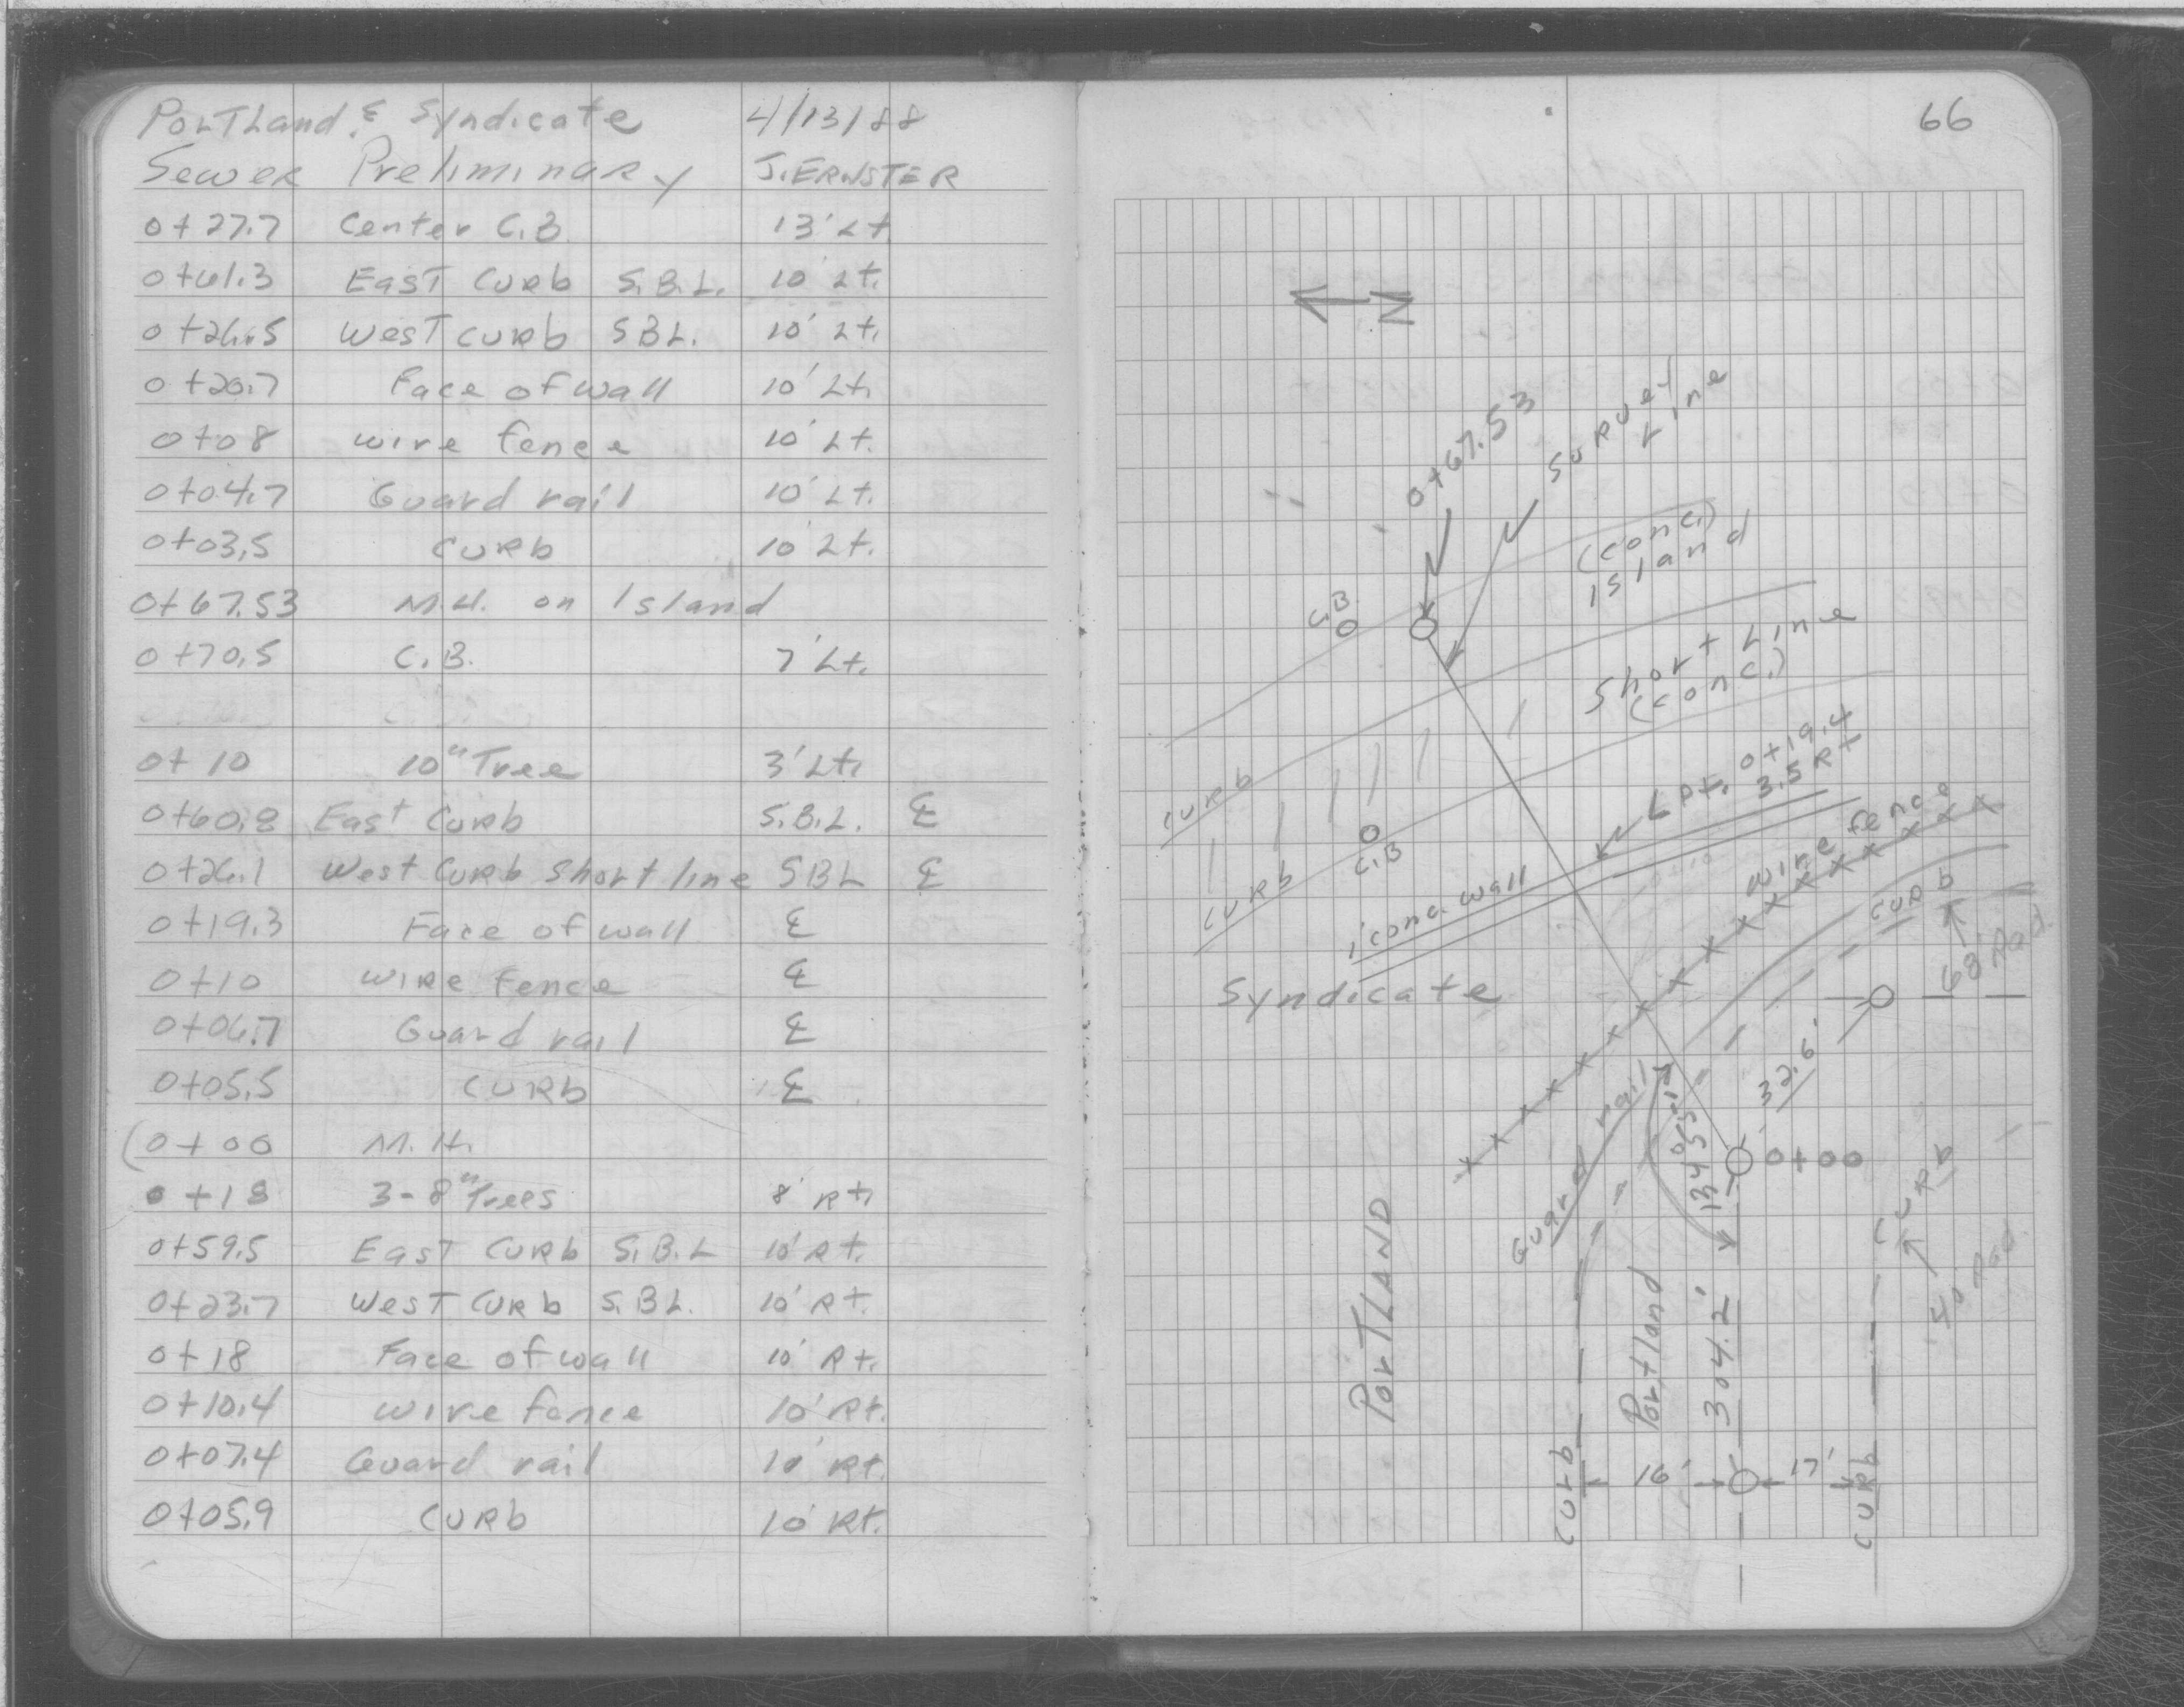 PorTLand & Syndicate 4/13/88
Sewer Preliminary J. ERNSTER
0+27.7 Center C.B. 13' Lt
0+61.3 East Curb S.B.L. 10' Lt.
0+26.5 West curb SBL. 10' Lt.
0+20.7 Face of wall 10' Lt.
0+08 wire fence 10' Lt.
0+04.7 Guard rail 10' Lt.
0+03.5 Curb 10' Lt.
0+67.53 M.H. on Island
0+70.5 C.B. 7' Lt.
0+10 10" Tree 3' Lt.
0+60.8 East Curb S.B.L. ℄
0+26.1 West Curb Short line SBL ℄
0+19.3 Face of wall ℄
0+10 wire fence ℄
0+06.7 Guard rail ℄
0+05.5 Curb ℄
(0+00 M.H.
0+18 3-8" Trees 8' Rt.
0+59.5 East Curb S.B.L 10' Rt.
0+23.7 West Curb S.BL. 10' Rt.
0+18 Face of wall 10' Rt.
0+10.4 wire fence 10' Rt.
0+07.4 Guard rail 10' Rt.
0+05.9 Curb 10' Rt.
66
N
0+67.53
Survey
Line
(conc.)
Island
C.B.
Short Line
(conc.)
curb
L Pt. 0+19.4
3.5 Rt
C.B
curb
1' conc. wall
wire fence
curb
68' Rad.
Syndicate
32.6'
Guard rail
0+00
curb
40 Rad.
PorTLAND
Portland
304.2'
curb
16'
17'
curb